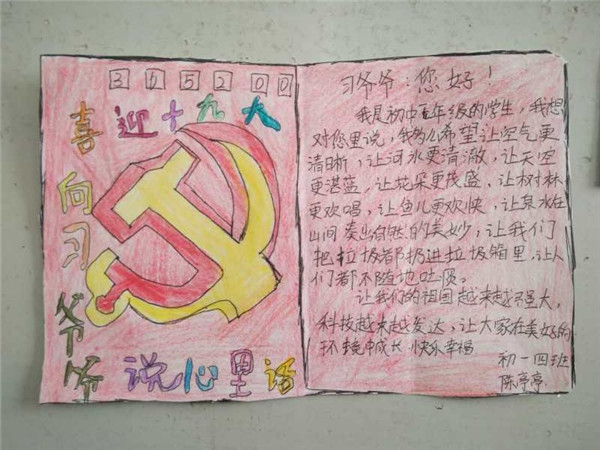 365200
喜迎十九大
向习爷爷
说心里话
习爷爷:您好!
我是初中一年级的学生,我想
对您里说,我多么希望让空气更
清晰,让河水更清澈,让天空
更湛蓝,让花朵更茂盛,让树林
更欢唱,让鱼儿更欢快,让泉水在
山间奏出自然的美妙,让我们
把垃圾都扔进垃圾箱里,让人
们都不随地吐痰。
让我们的祖国越来越强大,
科技越来越发达,让大家在美好的
环境中成长快乐幸福
初一四班
陈亭亭